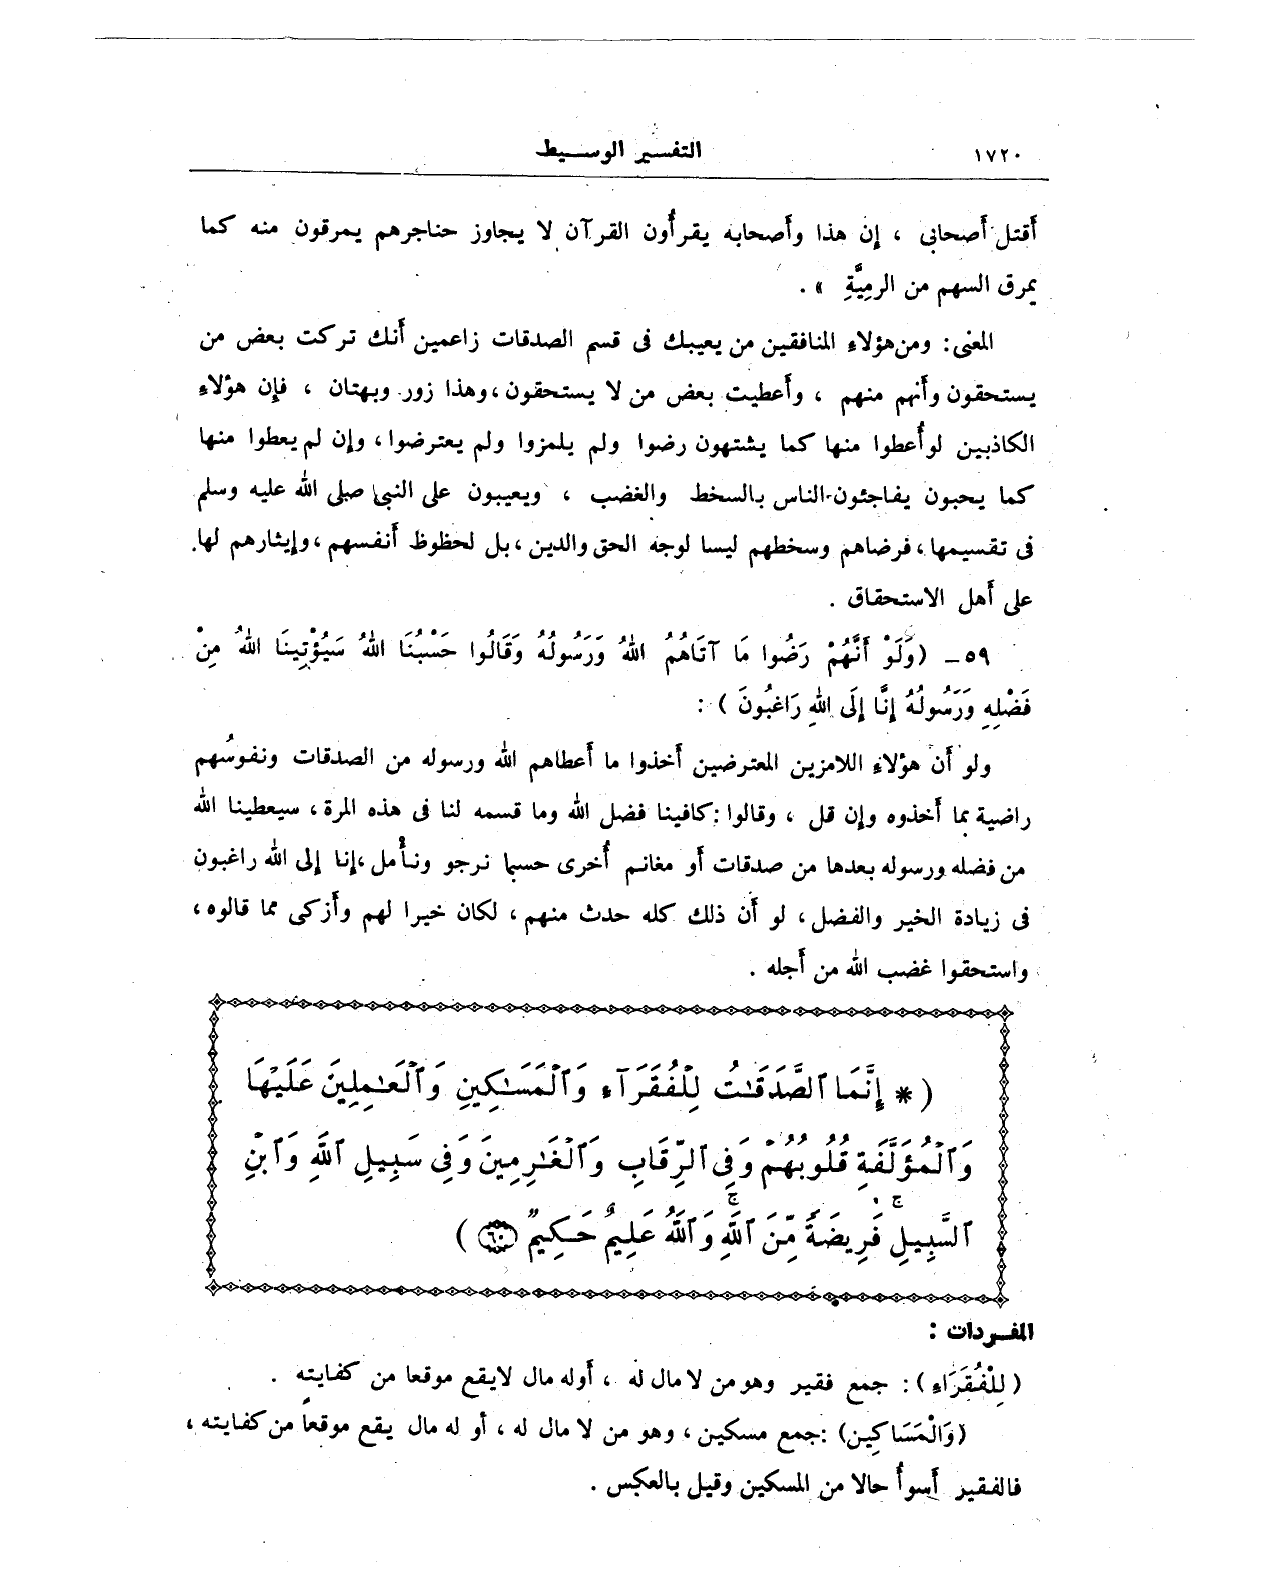 ١٧٢٠
التفسير الوسيط
أقتل أصحابى ، إن هذا وأصحابه يقرأون القرآن لا يجاوز حناجرهم يمرقون منه كما
يمرق السهم من الرميَّةِ » .
المعنى : ومن هؤلاء المنافقين من يعيبك فى قسم الصدقات زاعمين أنك تركت بعض من
يستحقون وأنهم منهم ، وأعطيت بعض من لا يستحقون ، وهذا زور وبهتان ، فإن هؤلاء
الكاذبين لو أُعطوا منها كما يشتهون رضوا ولم يلمزوا ولم يعترضوا ، وإن لم يعطوا منها
كما يحبون يفاجئون الناس بالسخط والغضب ، ويعيبون على النبى صلى الله عليه وسلم
فى تقسيمها ، فرضاهم وسخطهم ليسا لوجه الحق والدين ، بل لحظوظ أنفسهم ، وإيثارهم لها
على أهل الاستحقاق .
٥٩ - (وَلَوْ أَنَّهُمْ رَضُوا مَا آتَاهُمُ اللهُ وَرَسُولُهُ وَقَالُوا حَسْبُنَا اللهُ سَيُؤْتِينَا اللهُ مِنْ
فَضْلِهِ وَرَسُولُهُ إِنَّا إِلَى اللهِ رَاغِبُونَ ) :
ولو أن هؤلاء اللامزين المعترضين أخذوا ما أعطاهم الله ورسوله من الصدقات ونفوسُهم
راضية بما أخذوه وإن قل ، وقالوا : كافينا فضل الله وما قسمه لنا فى هذه المرة ، سيعطينا الله
من فضله ورسوله بعدها من صدقات أو مغانم أُخرى حسبما نرجو ونأمل ، إنا إلى الله راغبون
فى زيادة الخير والفضل ، لو أن ذلك كله حدث منهم ، لكان خيرا لهم وأزكى مما قالوه ،
واستحقوا غضب الله من أجله .
( * إِنَّمَا ٱلصَّدَقَـٰتُ لِلْفُقَرَآءِ وَٱلْمَسَـٰكِينِ وَٱلْعَـٰمِلِينَ عَلَيْهَا
وَٱلْمُؤَلَّفَةِ قُلُوبُهُمْ وَفِى ٱلرِّقَابِ وَٱلْغَـٰرِمِينَ وَفِى سَبِيلِ ٱللَّهِ وَٱبْنِ
ٱلسَّبِيلِ ۖ فَرِيضَةً مِّنَ ٱللَّهِ ۗ وَٱللَّهُ عَلِيمٌ حَكِيمٌ ﴿٦٠﴾ )
المفردات :
(لِلْفُقَرَاءِ) : جمع فقير وهو من لا مال له ، أوله مال لايقع موقعا من كفايته .
(وَالْمَسَاكِين) : جمع مسكين ، وهو من لا مال له ، أو له مال يقع موقعاً من كفايته ،
فالفقير أسوأ حالا من المسكين وقيل بالعكس .